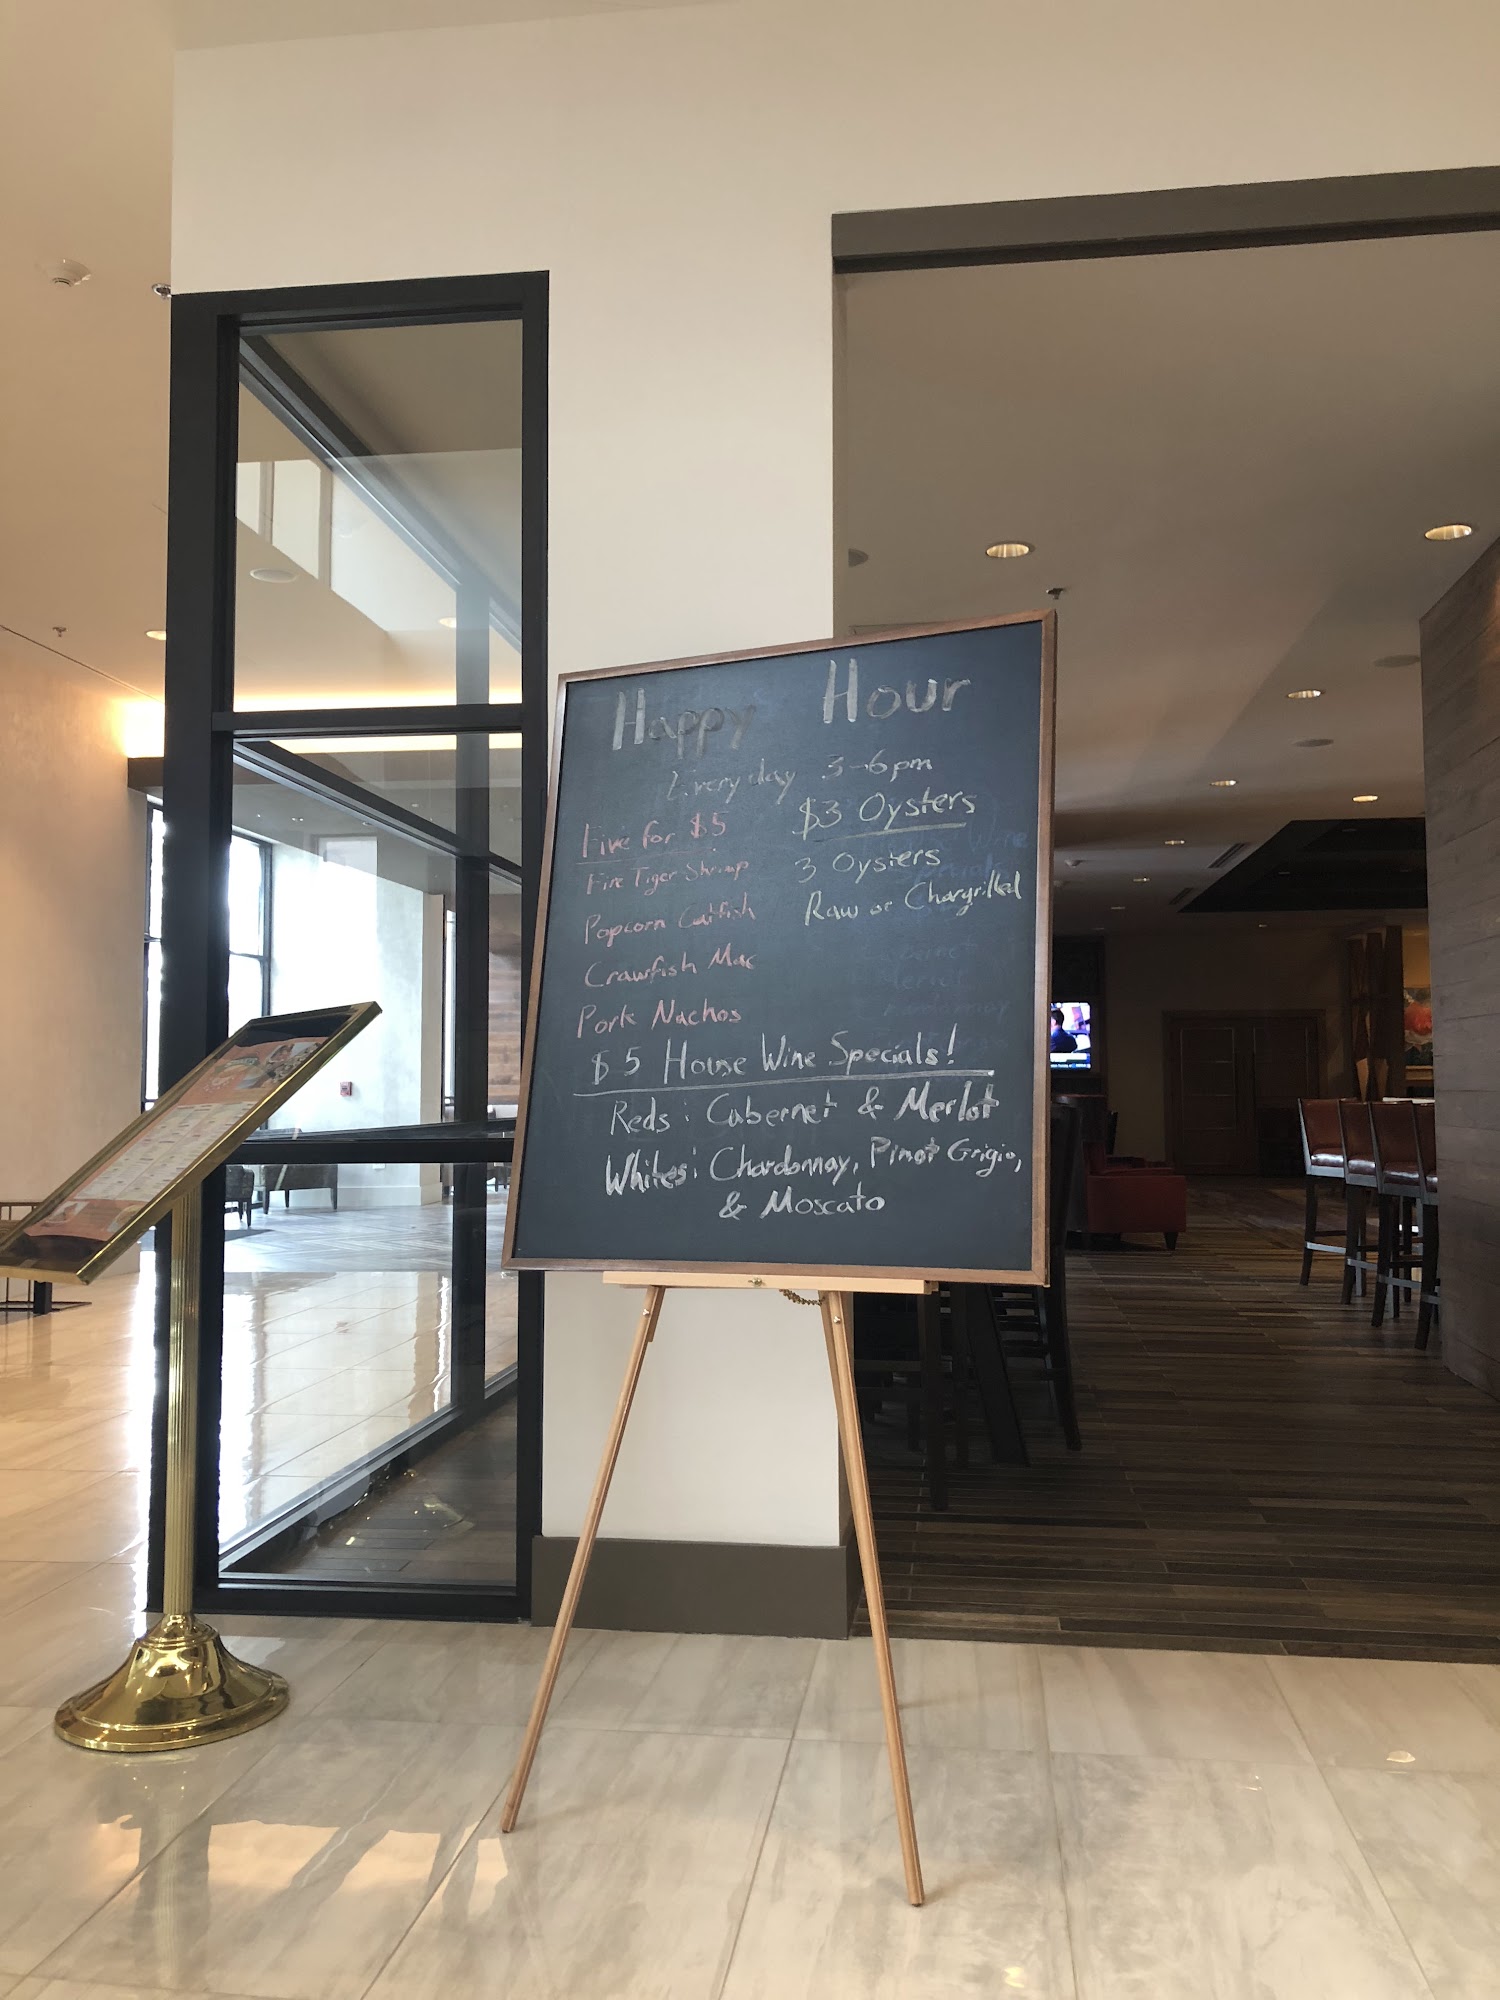 Happy Hour
Everyday 3-6pm
Five for $5
Fire Tiger Shrimp
Popcorn Catfish
Crawfish Mac
Pork Nachos
$3 Oysters
3 Oysters
Raw or Chargrilled
$5 House Wine Specials!
Reds: Cabernet & Merlot
Whites: Chardonnay, Pinot Grigio,
& Moscato